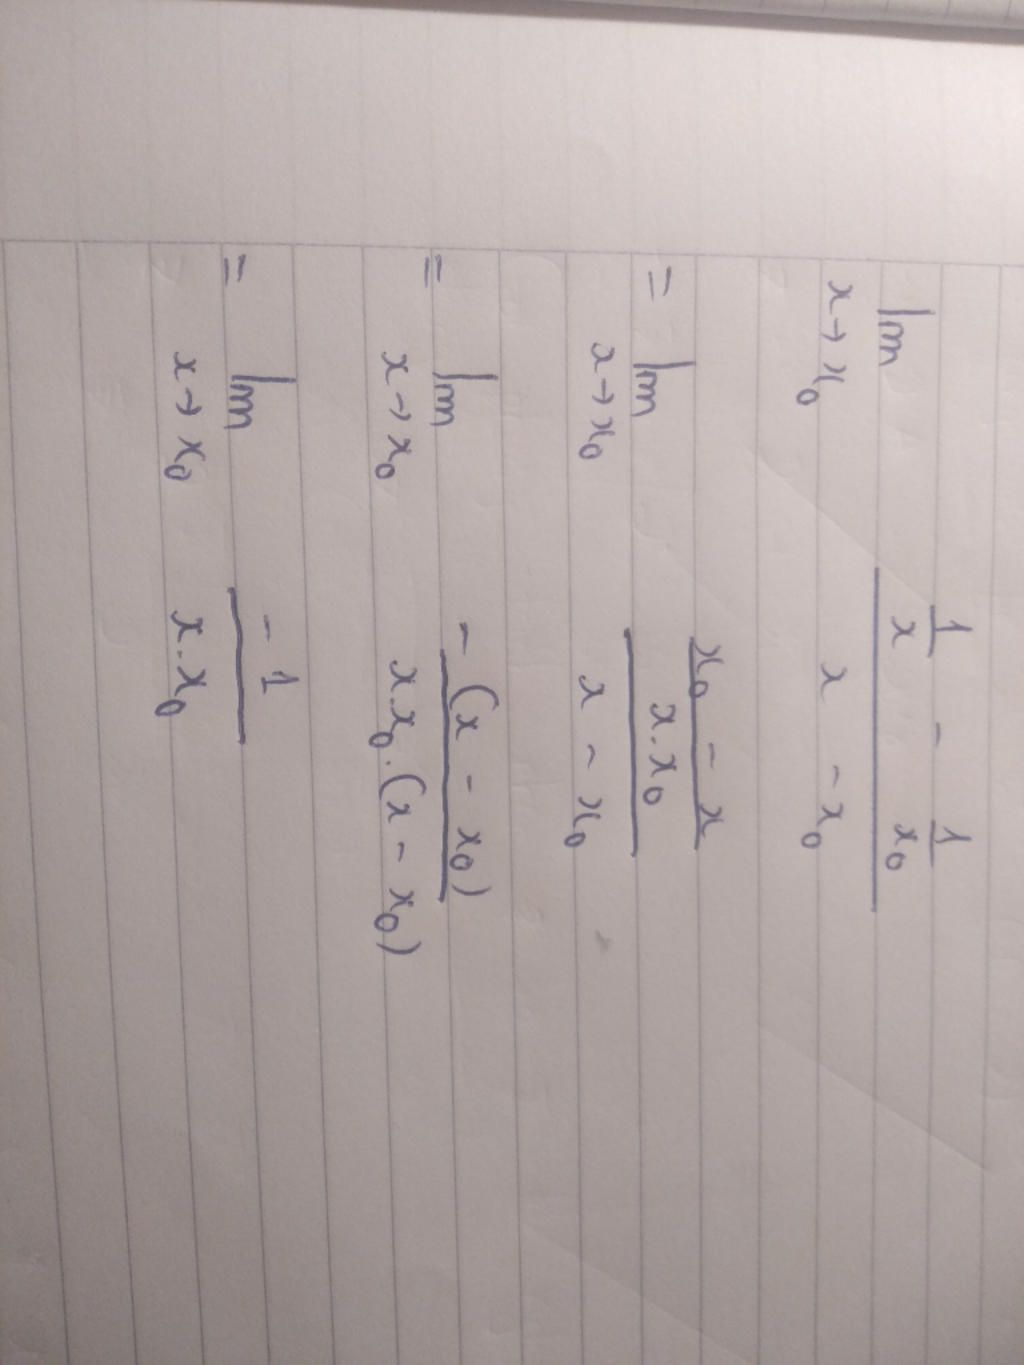 lim x→x₀ (1/x - 1/x₀)/(x - x₀)
= lim x→x₀ ((x₀ - x)/(x.x₀))/(x - x₀)
= lim x→x₀ -(x - x₀)/(x.x₀.(x - x₀))
= lim x→x₀ -1/(x.x₀)